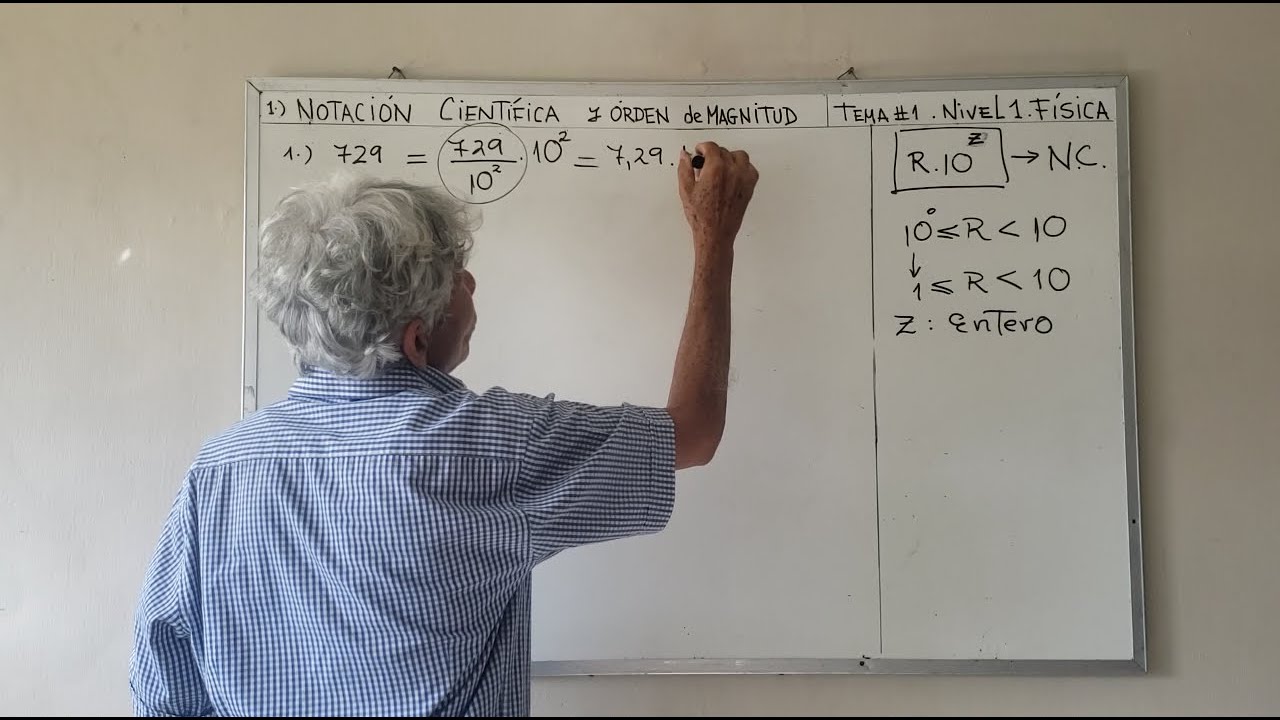 1.) NOTACIÓN CIENTÍFICA Y ÓRDEN de MAGNITUD
TEMA #1 . NIVEL 1. FÍSICA
1.) 729 = 729/10² . 10² = 7,29 .
R.10^Z → N.C.
10⁰ ≤ R < 10
↓
1 ≤ R < 10
Z : Entero